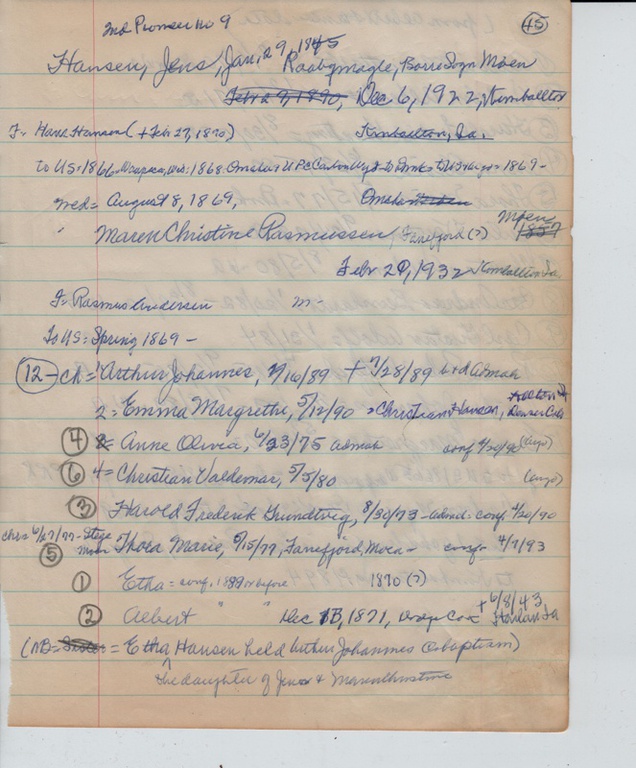 2nd Pioneer no 9
45
Hansen, Jens, Jan, 29, 1845 Raabymagle, Borre Sogn Moen
Febr 27, 1890, Dec 6, 1922, Kimballton
F= Hans Hansen (+ Febr 27, 1870) Kimballton, Ia.
to US=1866 Waupaca, Wis: 1868. Omaha + UPC Carbon Wyo to US 1869-
wed= August 8, 1869, Omaha
" Maren Christine Rasmussen, Fanefjord (?) Moen 1857
Febr 20, 1932 Kimballton Ia.
F= Rasmus Andersen m-
To US= Spring 1869-
12- ch= 1 Arthur Johannes, 7/16/89 + 7/28/89 b+d Almah
2= Emma Margrethe, 5/12/90 = Christian Hansen, Denver Colo
4 3= Anne Olivia, 6/23/75 admah conf 4/20/90 (Argo)
6 4= Christian Valdemar, 5/5/80 (Argo)
3 Harold Frederik Grundtvig, 8/30/73 - admah= conf 4/20/90
chrs 6/17/77- Stege Moen
5 Thora Marie, 5/15/77, Fanefjord, Moen - conf= 4/7/93
1 Etha = conf, 1889 or before 1870 (?)
2 Albert " " Dec 13, 1871, + 6/8/43, Harlan Ia
(NB= Sister = Etha Hansen held Arthur Johannes @ baptism)
the daughter of Jens + Maren Christine